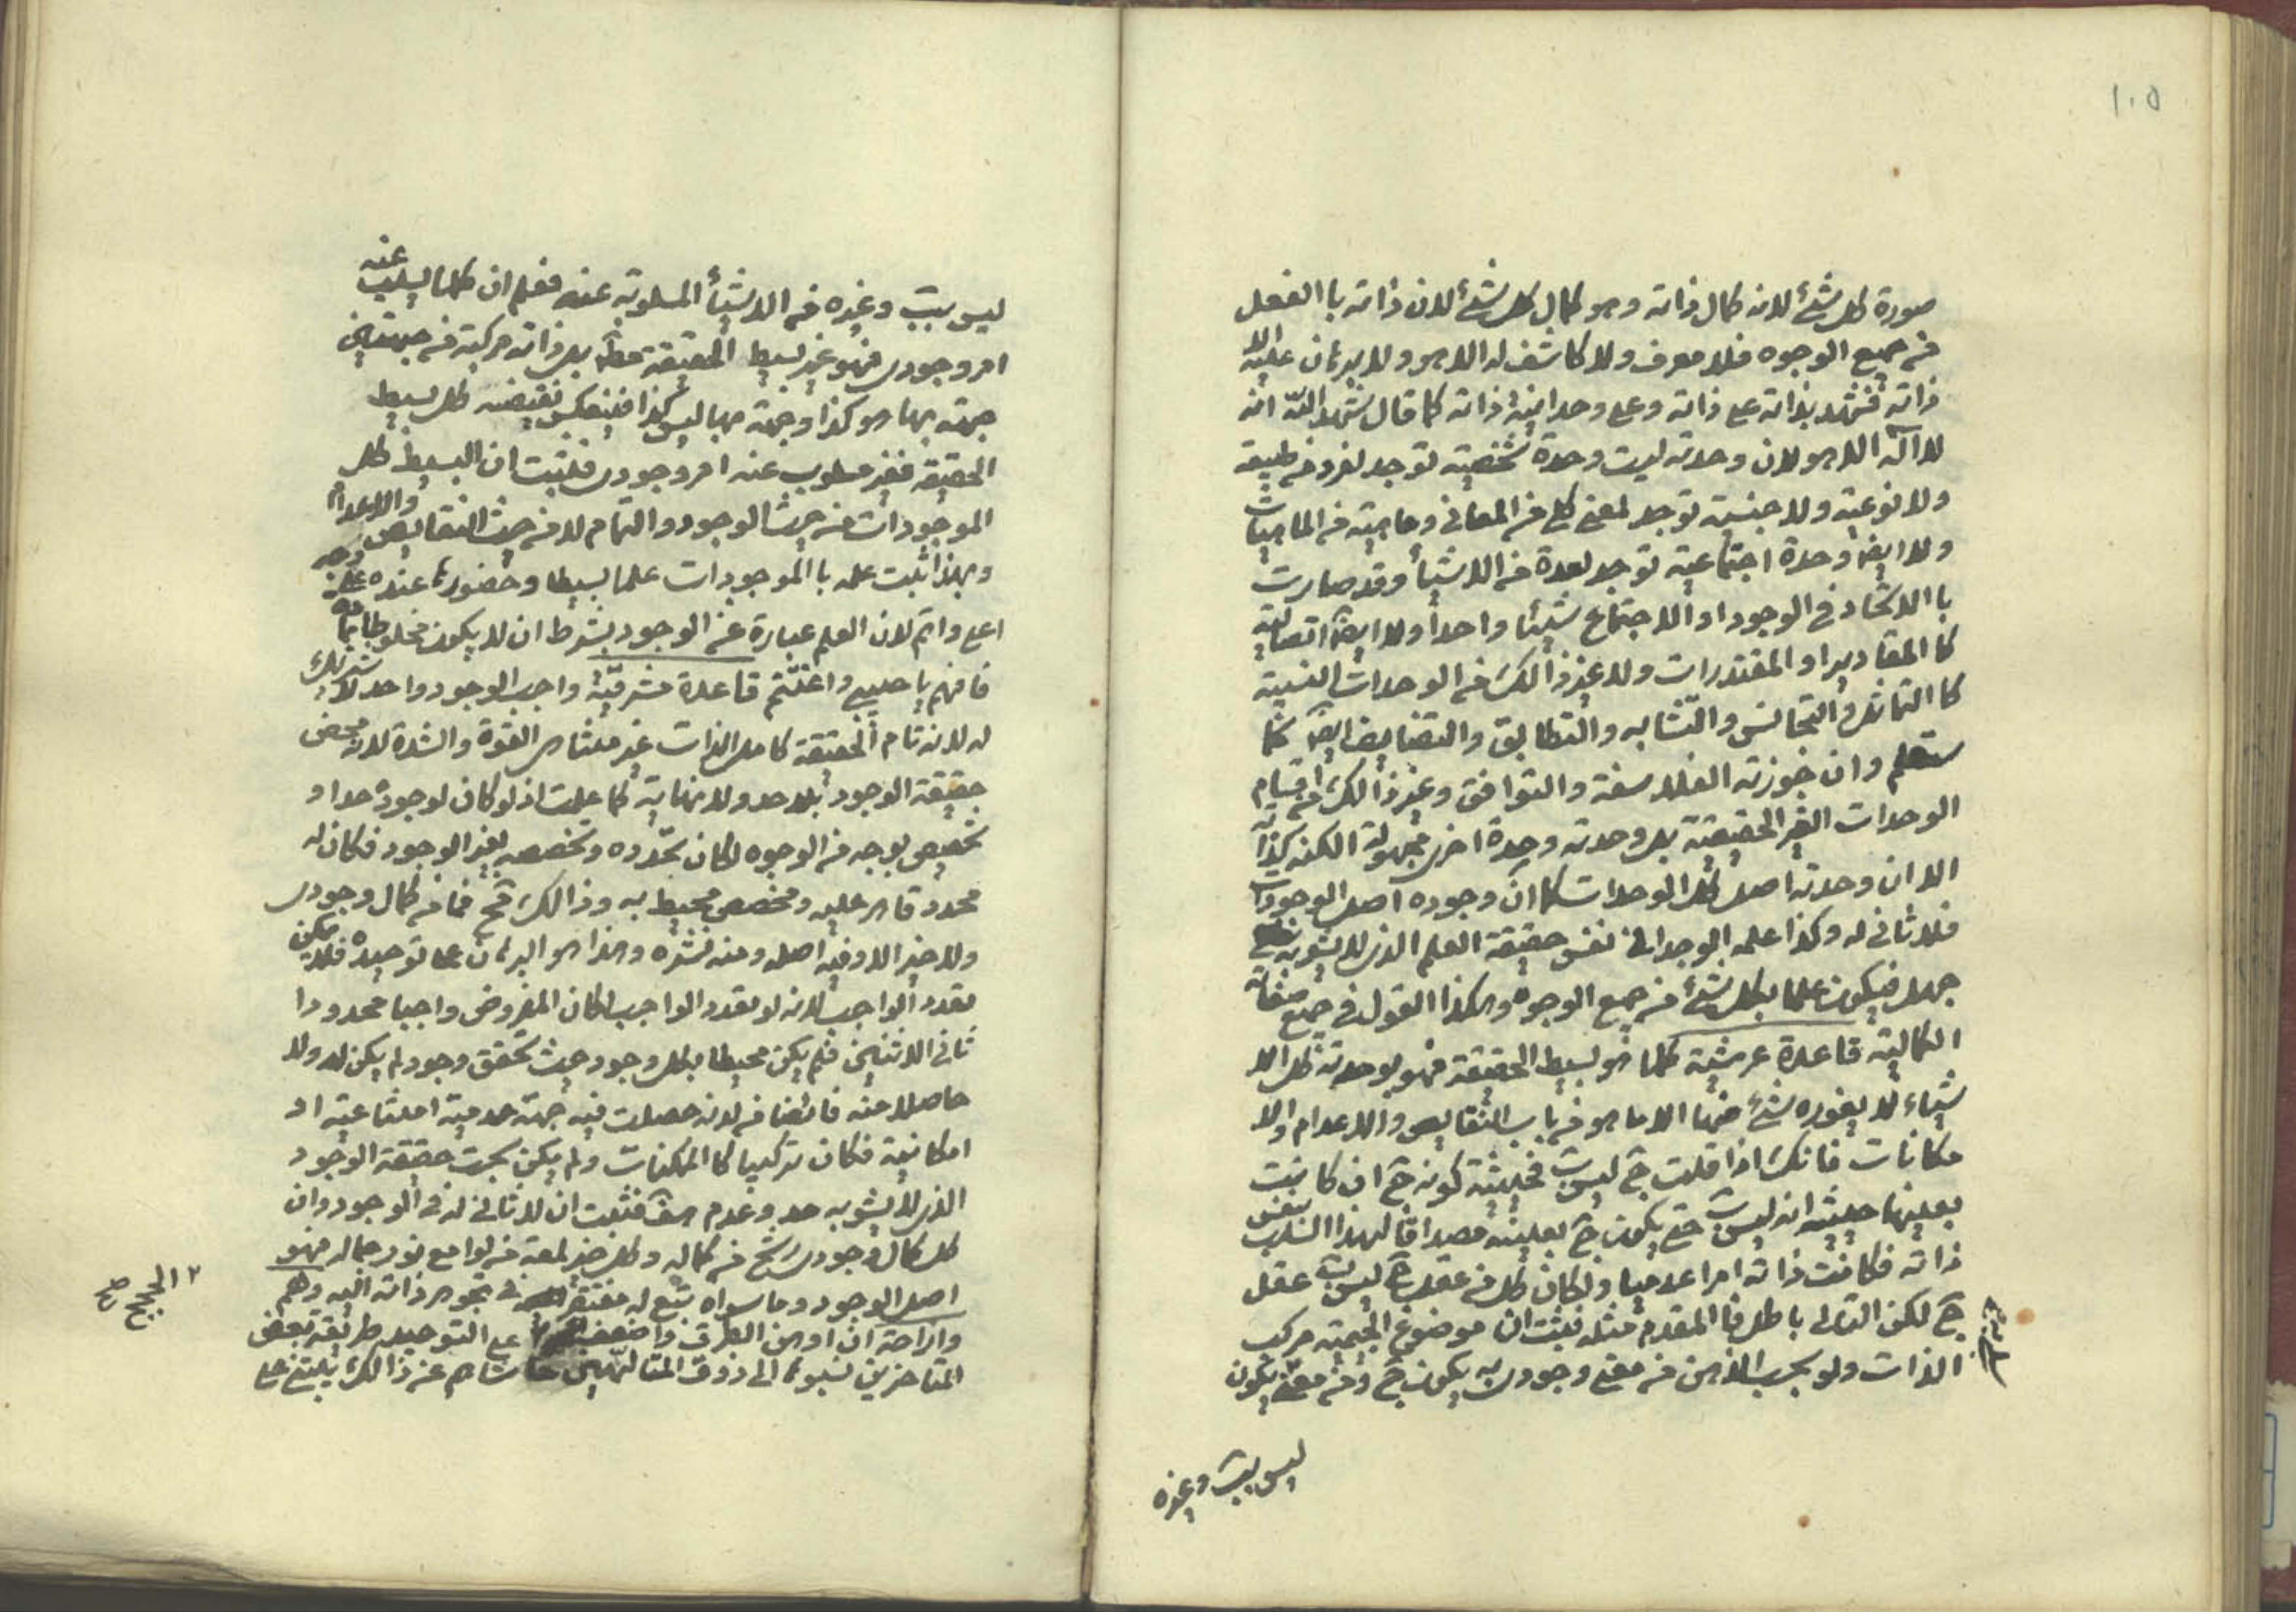 ١٠٥
صورة كل شئ لانه كمال ذاته وهو كمال كل شئ لان ذاته باالفعل
من جميع الوجوه فلا معرف ولا كاشف له الا هو ولا برهان عليه الا
ذاته فشهد بذاته على ذاته وعلى وحدانية ذاته كما قال شهد الله انه
لا اله الا هو لان وحدته ليست وحدة شخصية توجد لفرد من طبيعة
ولا نوعية ولا جنسية توجد لمعنى كلى من المعانى وماهية من الماهيات
ولا ايضا وحدة اجتماعية توجد لعدة من الاشيأ وقد صارت
باالاتحاد فى الوجود او االاجتماع شيئا واحدا ولا ايضا اتصالية
كا المقادير او المقتدرات ولا غير ذالك من الوحدات النسبية
كا التماثل و التجانس والتشابه والتطابق والتضايف ايضا كما
ستعلم وان جوزته الفلاسفة والتوافق وغير ذالك من اقسام
الوحدات الغير الحقيقية بل وحدته وحدة اخرى مجهولة الكنه كذاته
الا ان وحدته اصل كل الوحدات كما ان وجوده اصل الوجودات
فلا ثانى له وكذا علمه الوحدانى نفس حقيقة العلم الذى لا يشوبه
جهل فيكون علما بكل شئ من جميع الوجوه وهكذا القول فى جميع صفاته
الكمالية قاعدة عرشية كلما هو بسيط الحقيقة فهو بوحدته كل الا
شياء لا يعوزه شئ منها الا ما هو من باب النقايص والاعدام والا
مكانات فانك اذا قلت ج ليس ب فحيثية كونه ج ان كانت
بعينها حيثية انه ليس ب حتى يكون ج بعينه مصداقا لهذا السلب بنفس
ذاته فكانت ذاته امرا عدميا ولكان كل من عقل ج ليس ب عقل
ج لكن التالى باطل فا المقدم مثله فثبت ان موضوع الجيمية مركب
الذات ولو بحسب الذهن من معنى وجودى به يكون ج ومن معنى يكون
ليس بب وغيره
ليس بب وغيره من الاشيأ المسلوبة عنه فعلم ان كلما يسلب عنه
امر وجودى فهو غير بسيط الحقيقة مطلقا بل ذاته مركبة من جهتين
جهة بها هو كذا وجهة بها ليس كذا فبعكس نقيضه كل بسيط
الحقيقة فغير مسلوب عنه امر وجودى فثبت ان البسيط كل
الموجودات من حيث الوجود والتمام لا من حيث النقايص والاعدام
وبهذا ثبت علمه با الموجودات علما بسيطا وحضورها عنده على وجه
اعلى واتم لان العلم عبارة عن الوجود بشرط ان لا يكون مخلوطا بمادة
فافهم يا حبيبى واغتنم قاعدة مشرقية واجب الوجود واحد لا شريك
له لانه تام الحقيقة كامل الذات غير متناهى القوة والشدة لانه محض
حقيقة الوجود بلا حد ولا نهاية كما علمت اذ لو كان لوجوده حد او
تخصيص بوجه من الوجوه لكان تحدده وتخصصه بغير الوجود فكان له
محدد قاهر عليه ومخصص محيط به وذالك مح فما من كمال وجودى
ولا خير الا وفيه اصله ومنه نشؤه وهذا هو البرهان على توحيده فلا يمكن
تعدد الواجب لانه لو تعدد الواجب لكان المفروض واجبا محدودا
ثانى الاثنين فلم يكن محيطا بكل وجود حيث تحقق وجود لم يكن له ولا
حاصلا منه فائضا من لدنه حصلت فيه جهة عدمية امتناعية او
امكانية فكان تركيبيا كا الممكنات ولم يكن بحت حقيقة الوجود
الذى لا يشوبه حد وعدم هف فثبت ان لا ثانى له فى الوجود وان
كل كمال وجودى رشح من كماله وكل خير لمعة من لوامع نور جماله فهو
اصل الوجود وما سواه تبع له مفتقر فى تجوهر ذاته اليه وهم
وازاحة ان اوهن الطرق واضعف الحجج على التوحيد طريقة بعض
المتاخرين نسبوها الى ذوق المتالهين حاشاهم عن ذالك يبتنى على
٢ الحجج صح